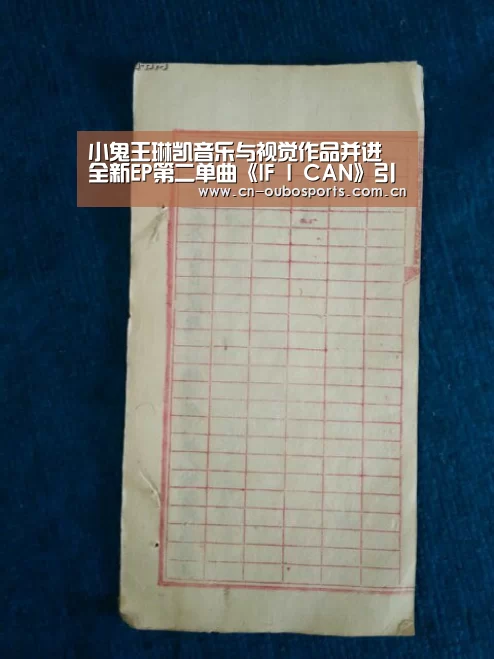 小鬼王琳凯音乐与视觉作品并进
全新EP第二单曲《IF I CAN》引
www.cn-oubosports.com.cn